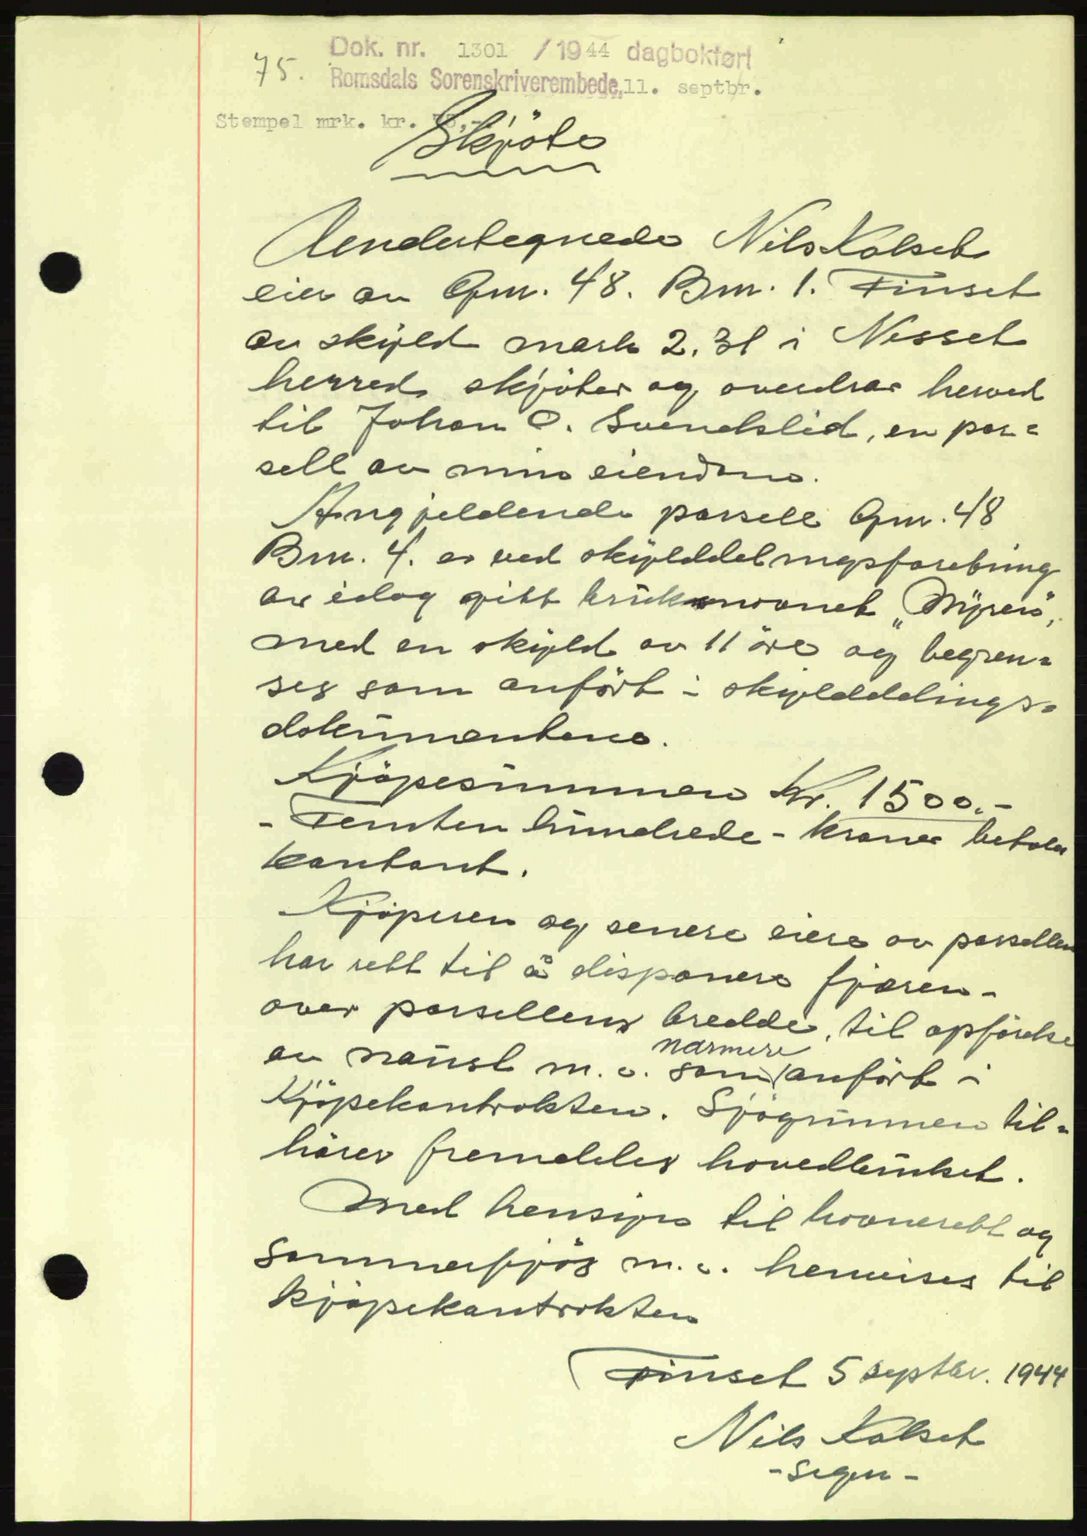 75. Dok. nr. 1301 /1944 dagbokført
Romsdals Sorenskriverembede, 11. septbr.
Stempel mrk. kr.
Skjöte
Undertegnede Nils Kolset
eier av Gnr. 48. Bnr. 1. Finset
av skyld mark 2.31 i Nesset
herred, skjöter og overdrar herved
til Johan O. Svendslid, en par=
sell av min eiendom.
Angjeldende parsell Gnr. 48
Bnr. 4. er ved skylddelingsforetning
av idag gitt bruksnavnet „Myren",
med en skyld av 11 öre og begren=
ses som anfört i skylddelings=
dokumentene.
Kjöpesummen Kr. 1500.-
- Femten hundrede - kroner betales
kontant.
Kjöperen og senere eiere av parsellen
har rett til å disponere fjæren-
over parsellens bredde, til opförelse
av naust m.v. som nærmere anfört i
Kjöpekontrakten. Sjögrunnen til=
hörer fremdeles hovedbruket.
Med hensyn til havnerett og
sommerfjös m.v. henvises til
kjöpekontrakten
Finset 5 septbr. 1944
Nils Kolset
- sign -